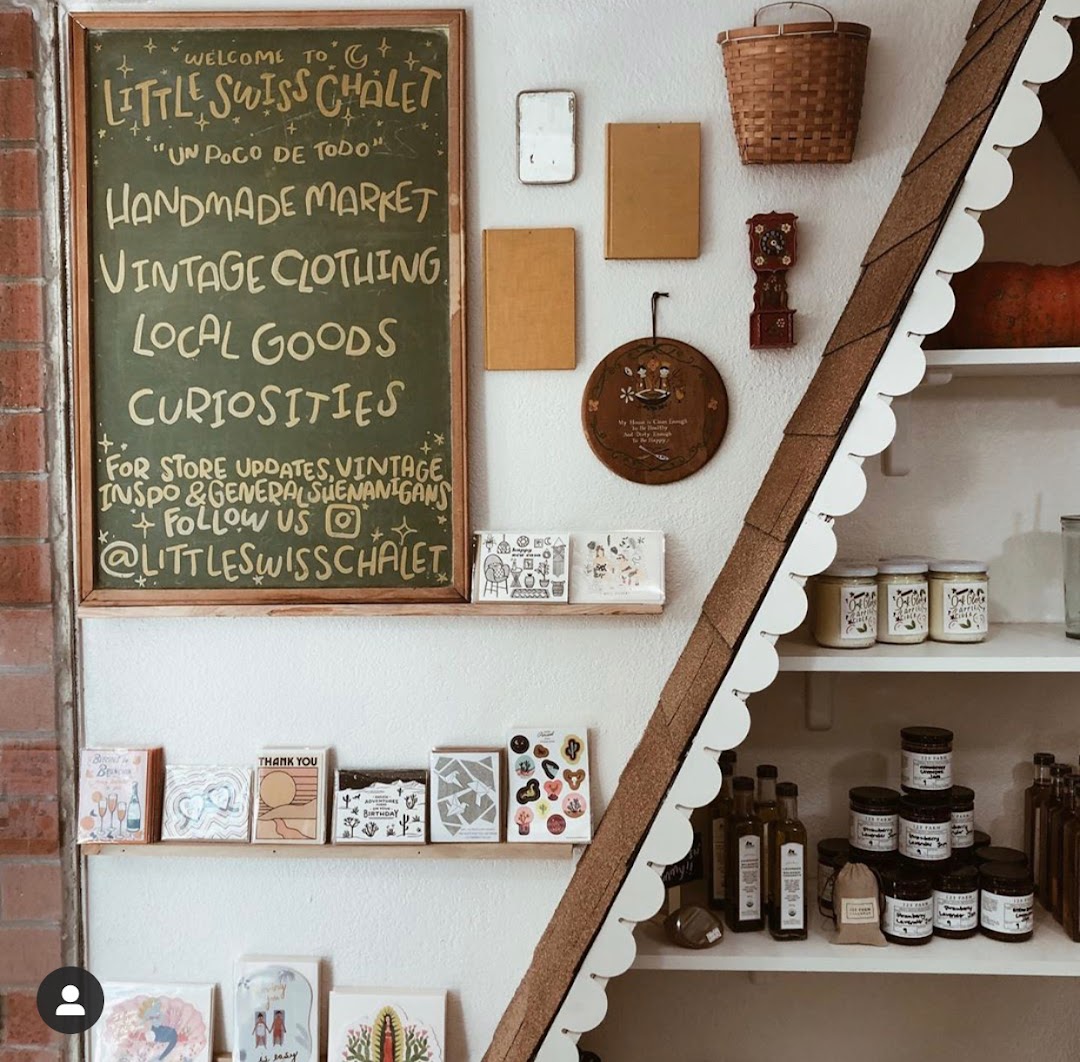 WELCOME TO
LITTLE SWISS CHALET
"UN POCO DE TODO"
HANDMADE MARKET
VINTAGE CLOTHING
LOCAL GOODS
CURIOSITIES
FOR STORE UPDATES, VINTAGE
INSPO & GENERAL SHENANIGANS
FOLLOW US
@LITTLESWISSCHALET
My House is Clean Enough
To Be Healthy
And Dirty Enough
To Be Happy
happy
new casa
THANK YOU
ADVENTURES
BIRTHDAY
Strawberry
Lavender Jam
Strawberry
Lavender Jam